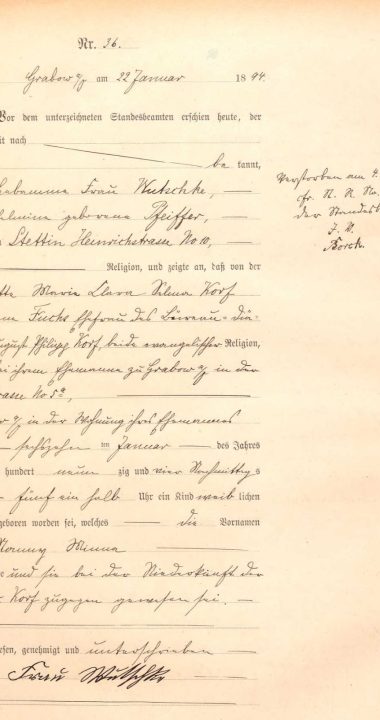 Nr. 36.
Grabow a/O am 22 Januar 1894.
Vor dem unterzeichneten Standesbeamten erschien heute, der
it nach
be kannt,
Hebamme Frau Wutschke,
elmine geborene Pfeiffer,
Stettin Heinrichstrasse No 10,
Religion, und zeigte an, daß von der
Marie Clara Selma Korf
Fuchs Ehefrau des Büreau-diä-
ugust Philipp Korf, beide evangelischer Religion,
bei ihrem Ehemanne zu Grabow a/O in der
rasse No 5a,
a/O in der Wohnung ihres Ehemannes
sechszehn ten Januar des Jahres
hundert neun zig und vier Nachmittags
fünf ein halb Uhr ein Kind weib lichen
geboren worden sei, welches die Vornamen
Nanny Minna
und sie bei der Niederkunft der
Korf zugegen gewesen sei.
esen, genehmigt und unterschrieben
Frau Wutschke
Verstorben am 4.
der Standesb
J. V.